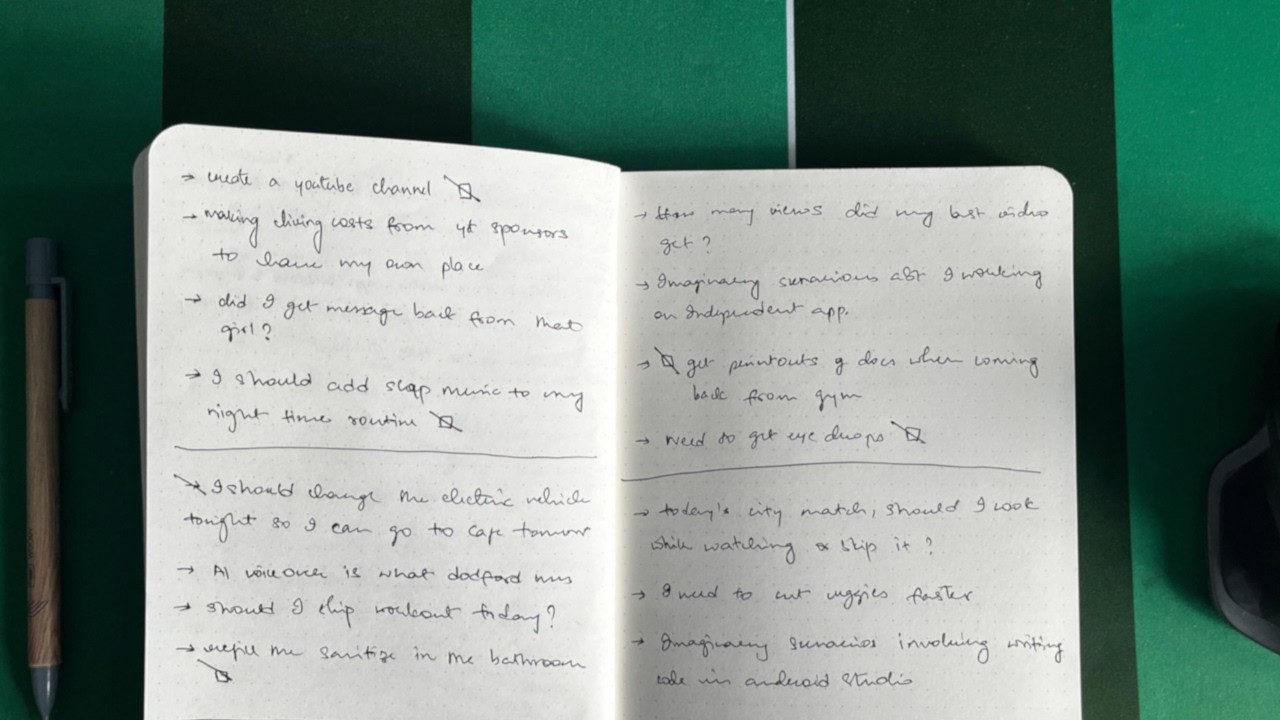 → create a youtube channel
→ making living costs from yt sponsors
to have my own place
→ did I get message back from that
girl?
→ I should add slap music to my
night time routine
→ I should charge the electric vehicle
tonight so I can go to cafe
→ AI voiceover is what
→ should I skip workout today?
→ refill the sanitize in the bathroom
→ How many views did my last video
get?
→ Imaginary I working
on Independent app.
→ get printouts of docs when coming
back from gym
→ need to get eye drops
→ today's city match, should I cook
while watching or skip it?
→ I need to cut veggies faster
→ Imaginary involving writing
code in android studio